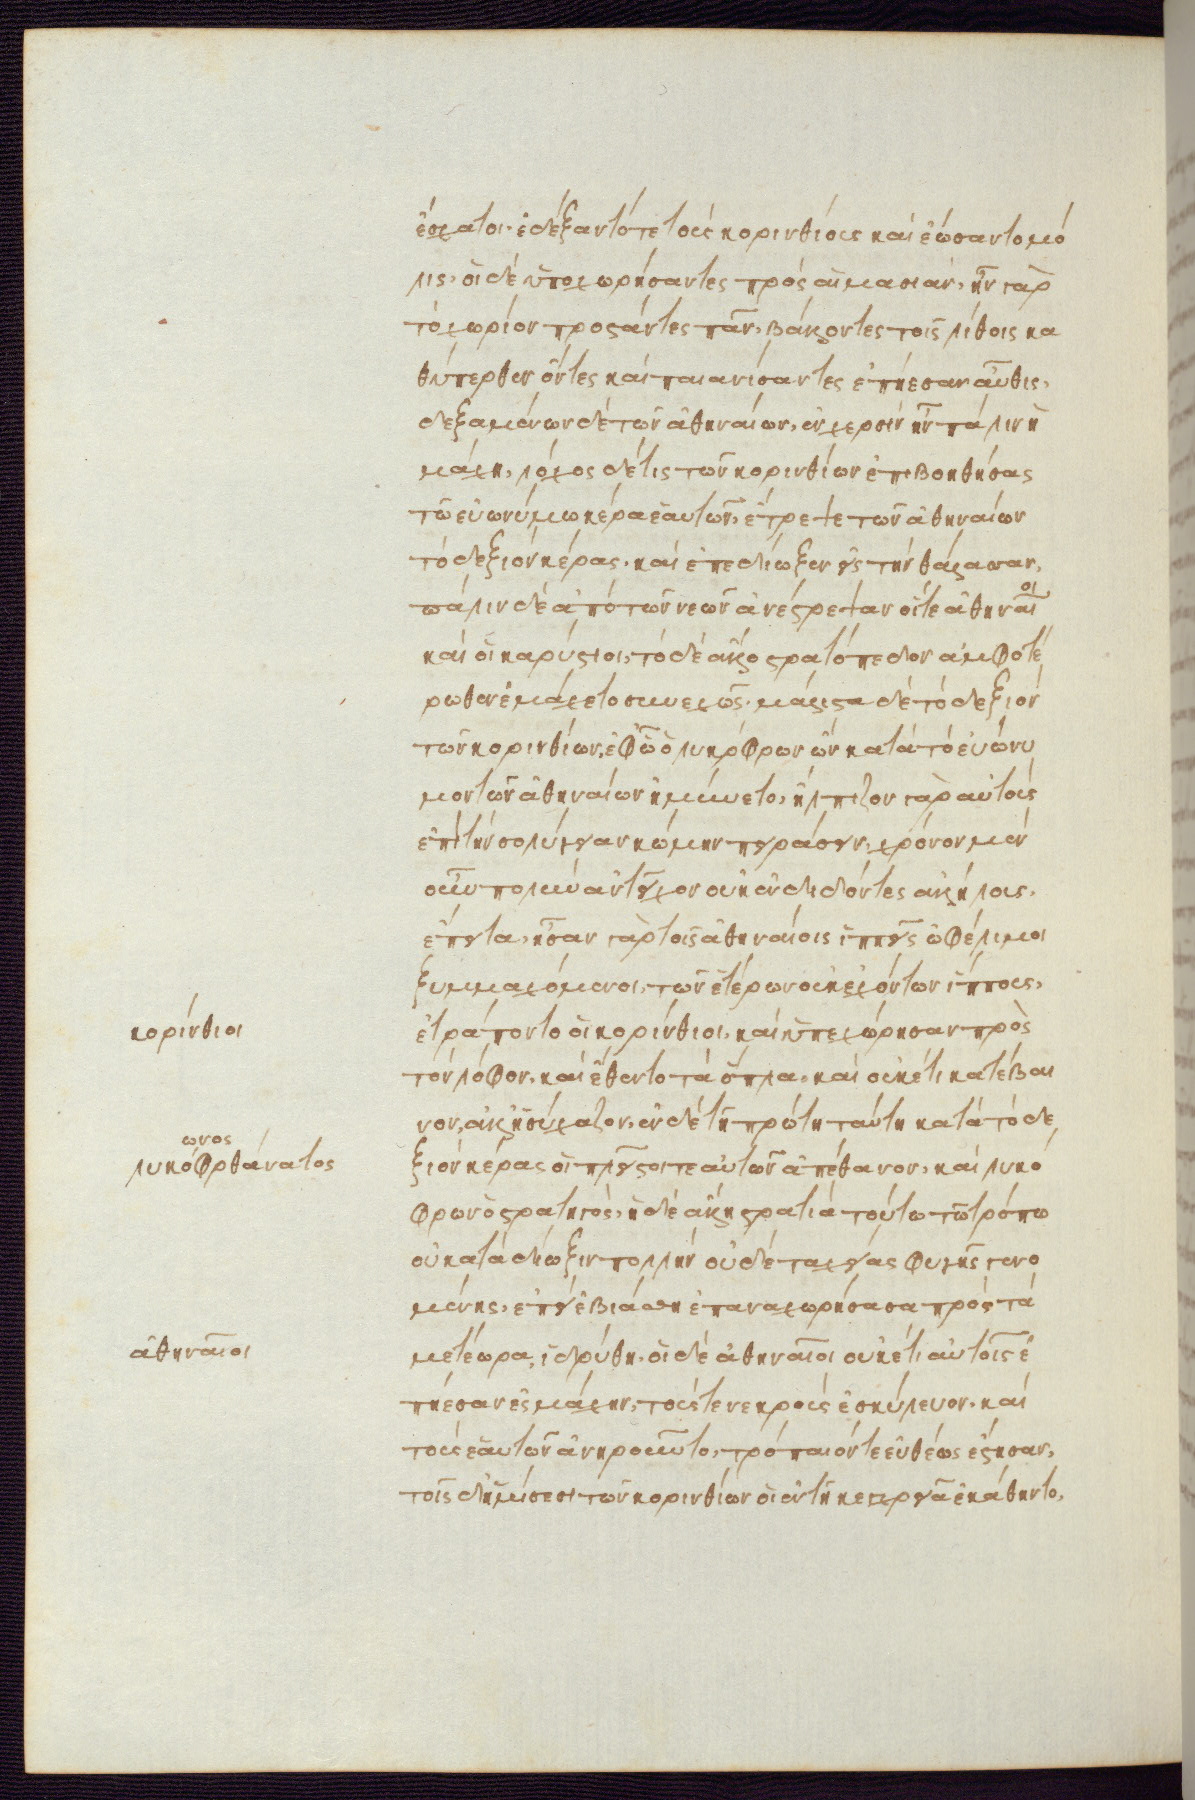 ἔσχατοι· ἐδέξαντό τε τοὺς κορινθίους καὶ ἐώσαντο μό
λις, οἱ δὲ ὑποχωρήσαντες πρὸς αἱμασιὰν, ἦν γὰρ
τὸ χωρίον πρόσαντες πᾶν, βάλλοντες τοῖς λίθοις κα
θύπερθεν ὄντες καὶ παιανίσαντες ἐπῄεσαν αὖθις,
δεξαμένων δὲ τῶν ἀθηναίων, ἐν χερσὶν ἦν πάλιν ἡ
μάχη, λόχος δέ τις τῶν κορινθίων ἐπιβοηθήσας
τῶ εὐωνύμω κέρα ἑαυτῶν, ἔτρεψε τῶν ἀθηναίων
τὸ δεξιὸν κέρας, καὶ ἐπεδίωξεν εἰς τὴν θάλασσαν,
πάλιν δὲ ἀπὸ τῶν νεῶν ἀνέστρεψαν οἵ τε ἀθηναῖοι
καὶ οἱ καρύστιοι, τὸ δὲ ἄλλο στρατόπεδον ἀμφοτέ
ρωθεν ἐμάχετο συνεχῶς. μάλιστα δὲ τὸ δεξιὸν
τῶν κορινθίων, ἐφ' ὧ ὁ λυκόφρων ὢν κατὰ τὸ εὐώνυ
μον τῶν ἀθηναίων ἠμύνετο, ἤλπιζον γὰρ αὐτοὺς
ἐπὶ τὴν σολύγειαν κώμην πειράσειν, χρόνον μὲν
οὖν πολὺν ἀντεῖχον οὐκ ἐνδιδόντες ἀλλήλοις,
ἔπειτα, ἦσαν γὰρ τοῖς ἀθηναίοις ἱππεῖς ὠφέλιμοι
ξυμμαχόμενοι, τῶν ἑτέρων οὐκ ἐχόντων ἵππους,
κορίνθιοι
ἐτράποντο οἱ κορίνθιοι, καὶ ὑπεχώρησαν πρὸς
τὸν λόφον, καὶ ἔθεντο τὰ ὅπλα, καὶ οὐκέτι κατέβαι
νον, ἀλλ' ἡσύχαζον, ἐν δὲ τῆ τρόπη ταύτη κατὰ τὸ δε
λυκόφρωνος θάνατος
ξιὸν κέρας οἱ πλεῖστοί τε αὐτῶν ἀπέθανον, καὶ λυκό
φρων ὁ στρατηγὸς, ἡ δὲ ἄλλη στρατιὰ τούτω τῶ τρόπω
οὐ κατὰ δίωξιν πολλὴν οὐδὲ ταχείας φυγῆς γενο
μένης, ἐπεὶ ἐβιάσθη ἐπαναχωρήσασα πρὸς τὰ
ἀθηναῖοι
μετέωρα, ἱδρύθη, οἱ δὲ ἀθηναῖοι οὐκέτι αὐτοῖς ἐ
πῄεσαν ἐς μάχην, τούς τε νεκροὺς ἐσκύλευον, καὶ
τοὺς ἑαυτῶν ἀνῃροῦντο, τρόπαιόν τε εὐθέως ἔστησαν,
τοῖς δ' ἡμίσεσι τῶν κορινθίων οἳ ἐν τῆ κεγχρειᾶ ἐκάθηντο,